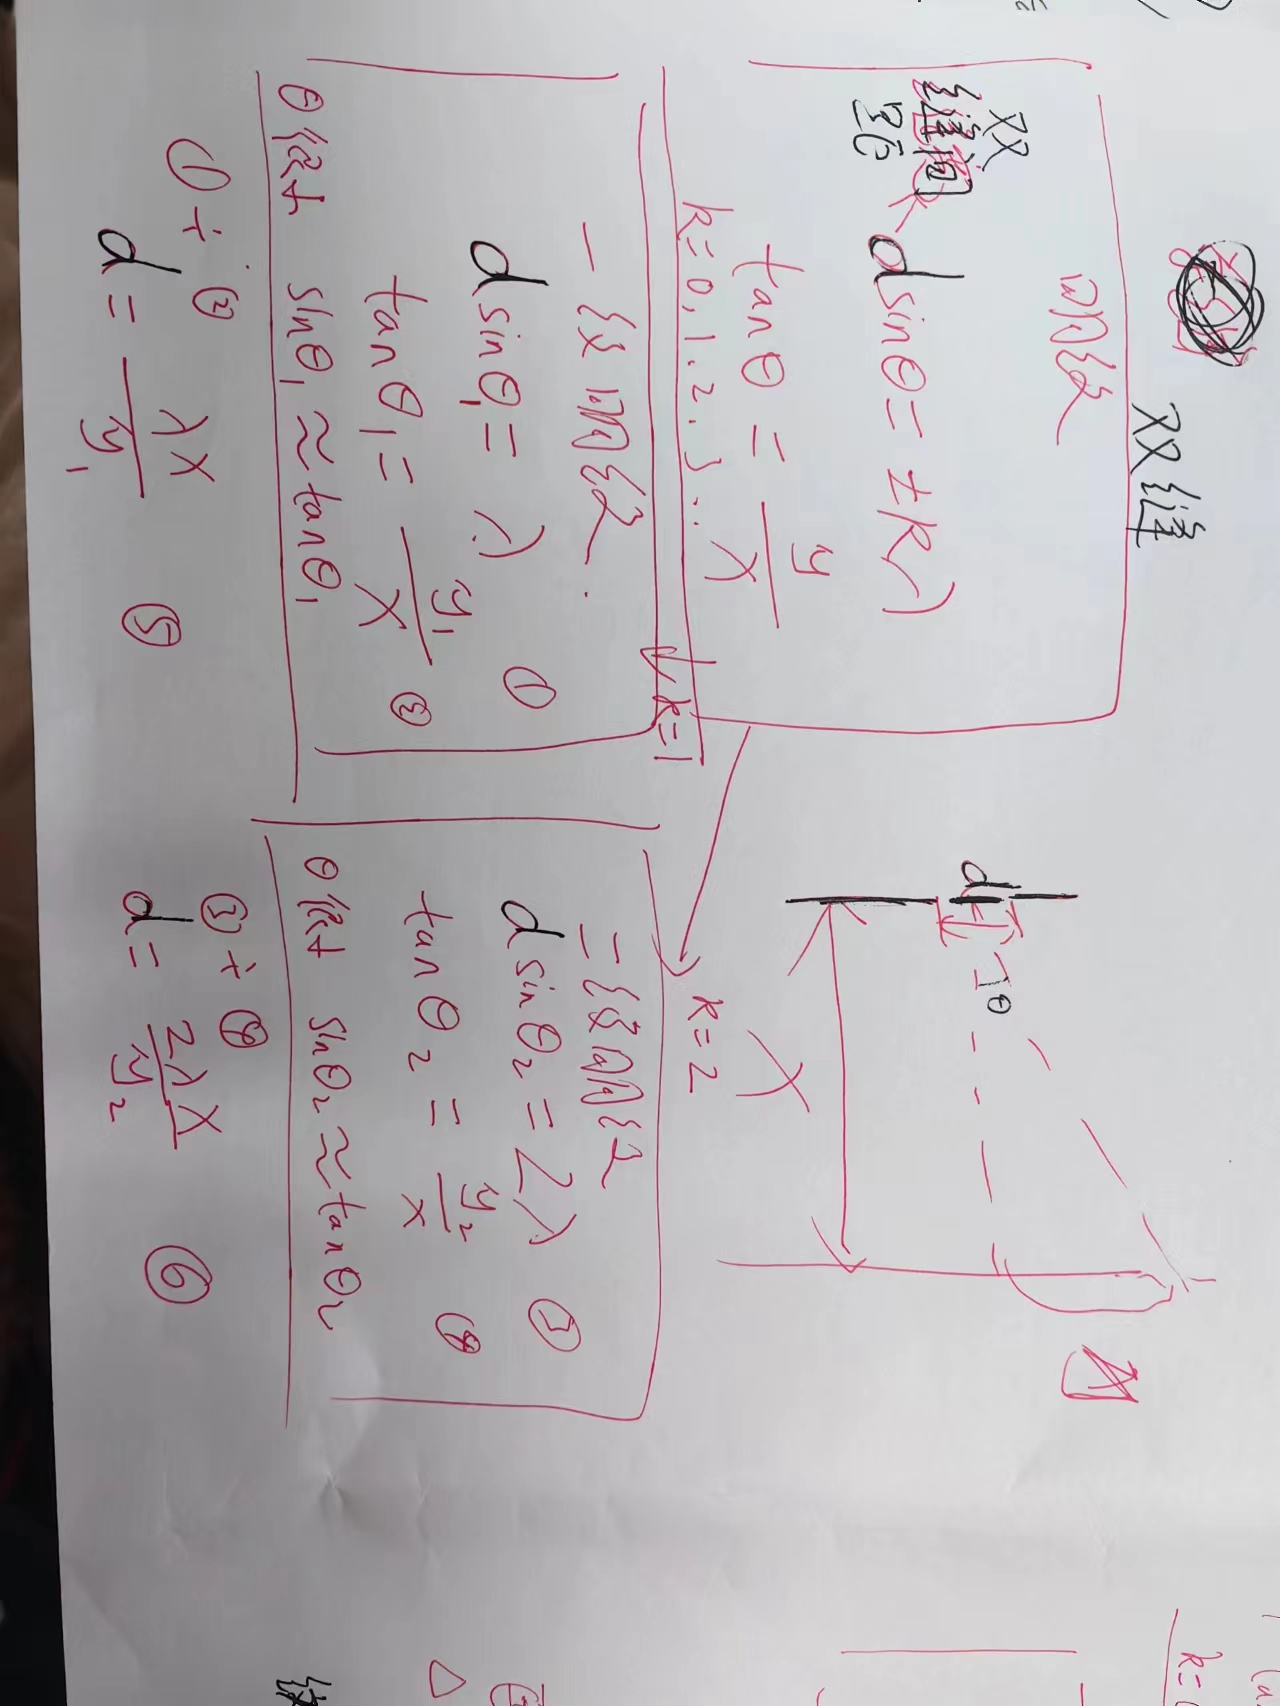 双缝
明纹
双
缝间
距
d sinθ = ±kλ
tanθ = y/x
k=0,1,2,3...
k=1
k=2
d
θ
x
一级明纹
d sinθ₁ = λ ①
tanθ₁ = y₁/x ②
θ很小 sinθ₁ ≈ tanθ₁
①÷②
d = λx/y₁ ⑤
二级明纹
d sinθ₂ = 2λ ③
tanθ₂ = y₂/x ④
θ很小 sinθ₂ ≈ tanθ₂
③÷④
d = 2λx/y₂ ⑥